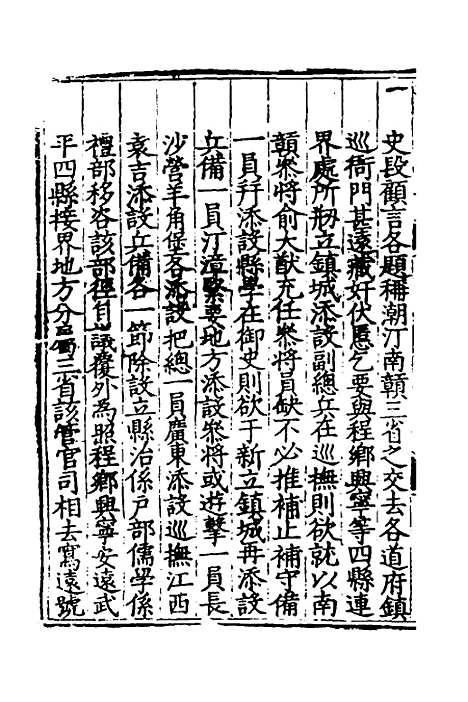 一
史段顧言各題稱潮汀南贛三省之交去各道府鎮
巡衙門甚遠藏奸伏慝乞要與程鄉興寧等四縣連
界處所剏立鎮城添設副總兵在巡撫則欲就以南
贛叅將俞大猷充任叅將員缺不必推補止補守備
一員并添設縣學在御史則欲于新立鎮城再添設
兵備一員汀漳緊要地方添設叅將或遊擊一員長
沙營羊角堡各添設把總一員廣東添設巡撫江西
袁吉添設兵備各一節除設立縣治係戶部儒學係
禮部移咨該部徑自議覆外為照程鄉興寧安遠武
平四縣接界地方分屬三省該管官司相去寫遠號